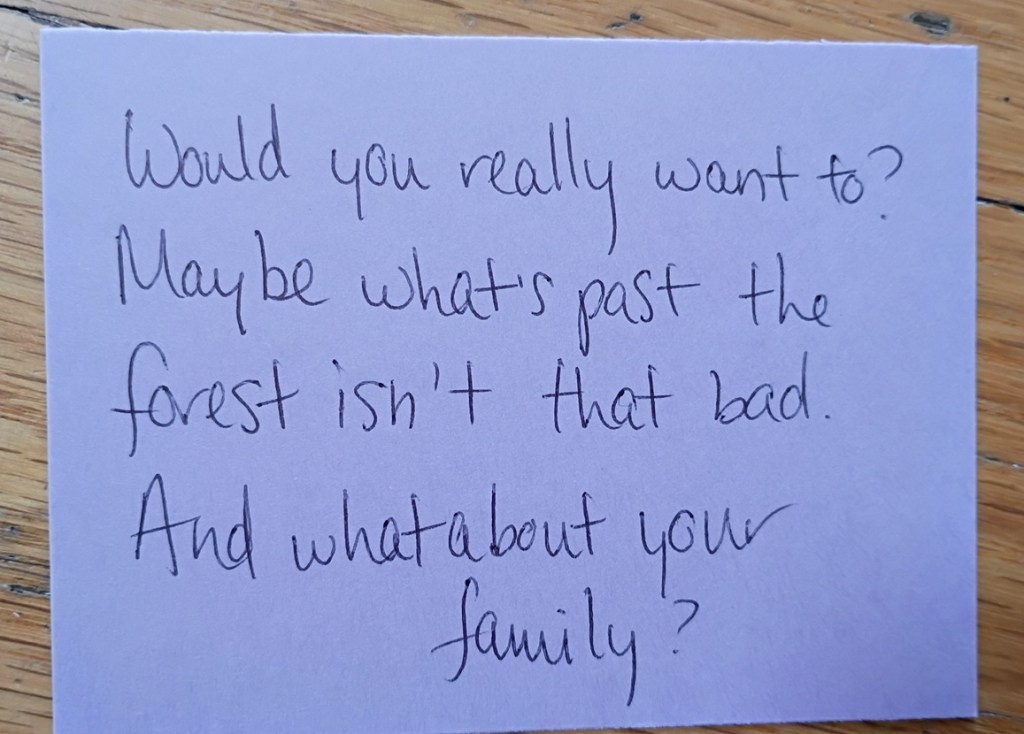 Would you really want to?
Maybe what's past the
forest isn't that bad.
And what about your
family?